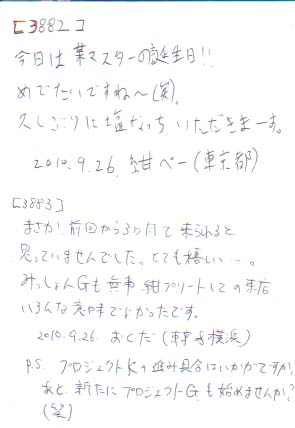 [3882]
今日は葉マスターの誕生日!!
めでたいですね〜(笑)。
久しぶりに塩なっち いただきまーす。
2010.9.26. 紺ペー(東京都)
[3883]
まさか、前回から3ヶ月で来られると
思っていませんでした。とても嬉しい…。
みっしょんGも無事 紺プリートしての来店
いろんな意味でよかったです。
2010.9.26. おくだ(東京与横浜)
P.S. プロジェクトKの進み具合はいかがですか?
あと、新たにプロジェクトGも始めませんか?
(笑)